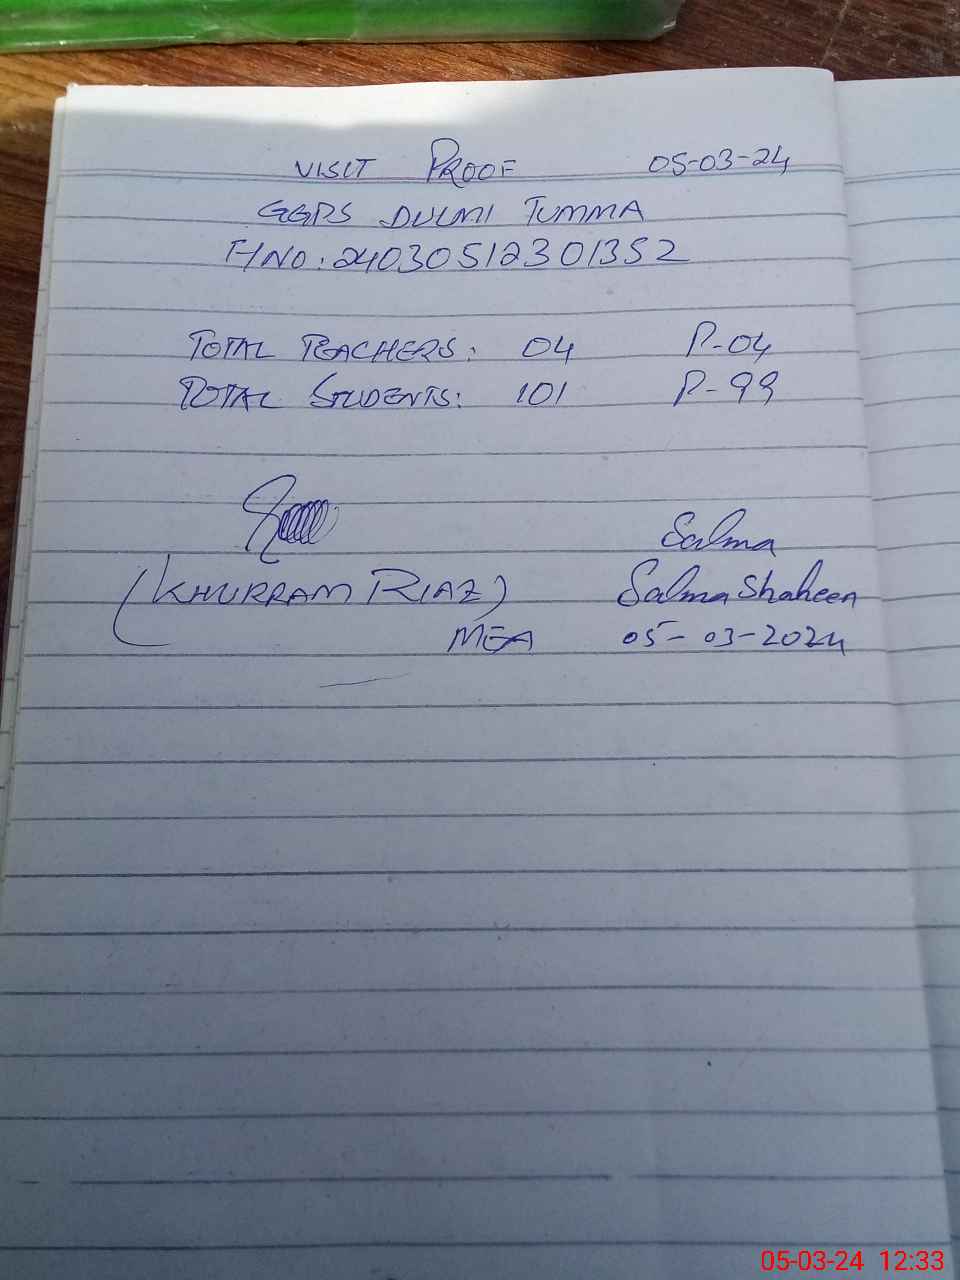 VISIT PROOF 05-03-24
GGPS DULMI TUMMA
F/NO: 24030512301352
TOTAL TEACHERS: 04 P-04
TOTAL STUDENTS: 101 P-99
Salma
(KHURRAM RIAZ) Salma Shaheen
MEA 05-03-2024
05-03-24 12:33